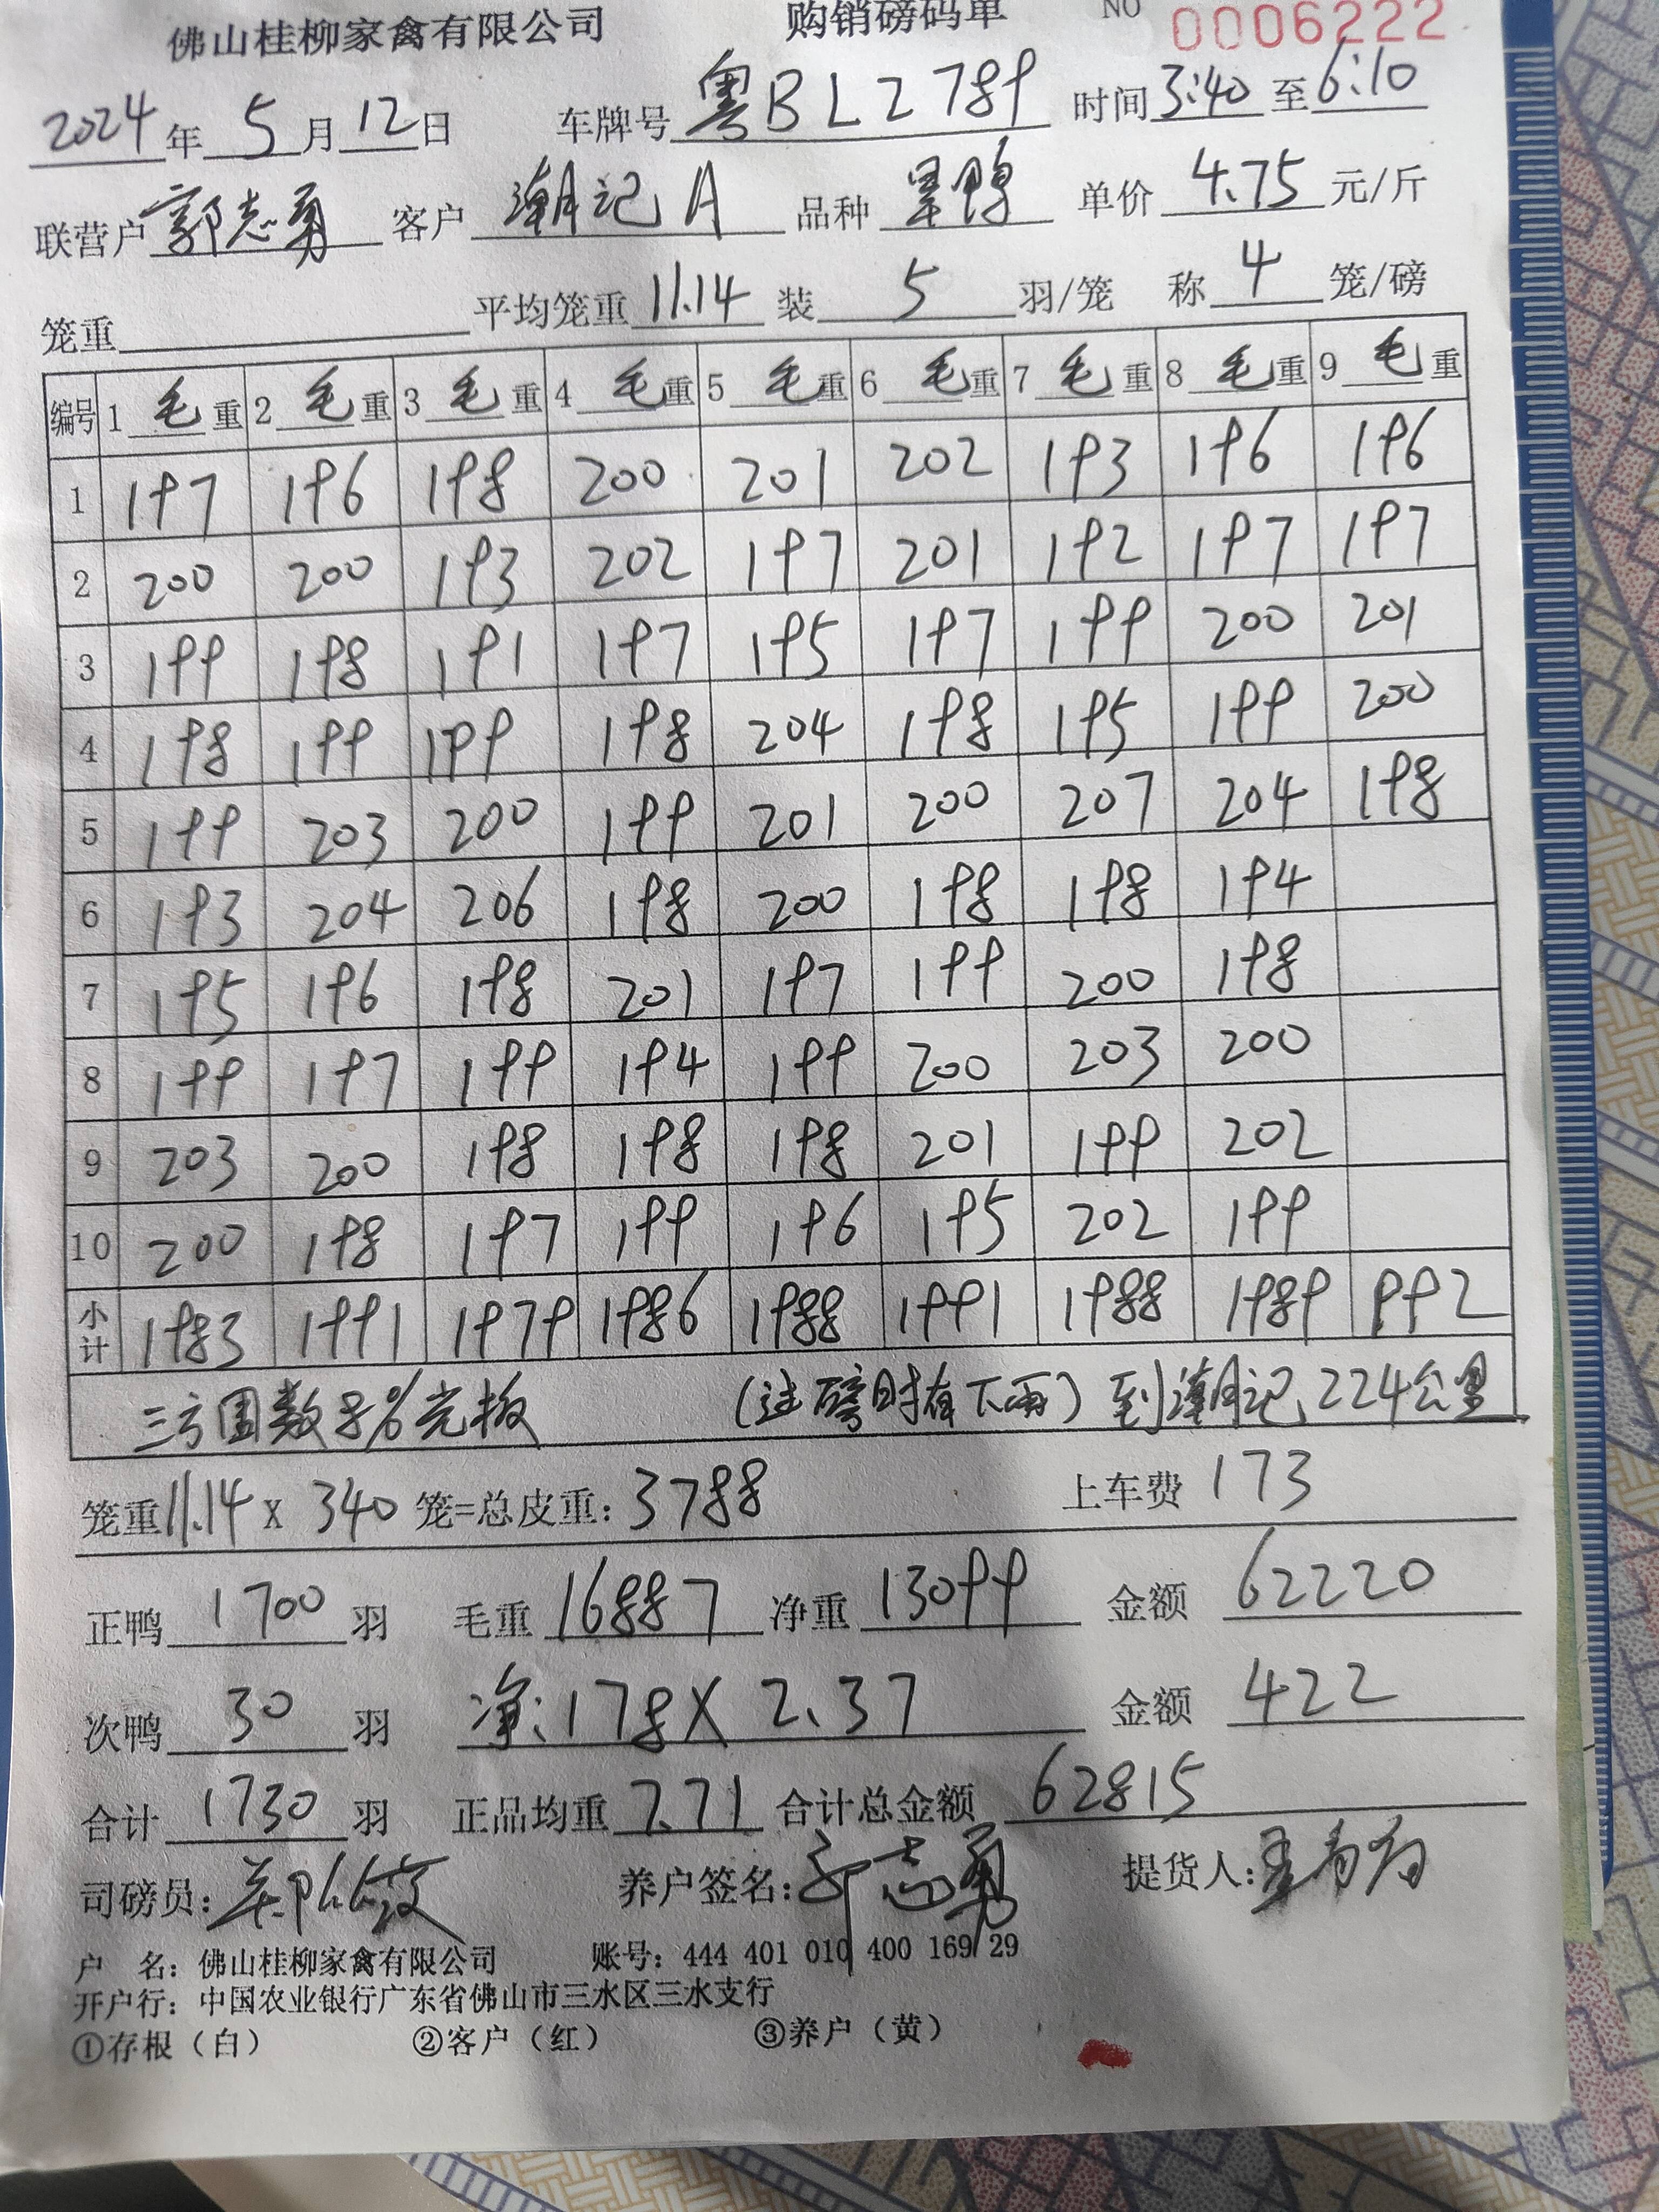 佛山桂柳家禽有限公司 购销磅码单 NO 0006222
2024年5月12日 车牌号 粤BLZ789 时间3:40至6:10
联营户 郭志勇 客户 潮记A 品种 单价 4.75 元/斤
笼重 平均笼重 11.14 装 5 羽/笼 称 4 笼/磅
编号 1 毛重 2 毛重 3 毛重 4 毛重 5 毛重 6 毛重 7 毛重 8 毛重 9 毛重
1 197 196 198 200 201 202 193 196 196
2 200 200 193 202 197 201 192 197 197
3 199 198 191 197 195 197 199 200 201
4 198 199 199 198 204 198 195 199 200
5 199 203 200 199 201 200 207 204 198
6 193 204 206 198 200 198 198 194
7 195 196 198 201 197 199 200 198
8 199 197 199 194 199 200 203 200
9 203 200 198 198 198 201 199 202
10 200 198 197 199 196 195 202 199
小计 1983 1991 1979 1986 1988 1991 1988 1989 992
(过磅时有下雨) 到潮记224公里
笼重11.14 x 340 笼=总皮重:3788 上车费 173
正鸭 1700 羽 毛重 16887 净重 13099 金额 62220
次鸭 30 羽 净:178X2.37 金额 422
合计 1730 羽 正品均重 7.71 合计总金额 62815
司磅员: 养户签名:郭志勇 提货人:
户 名: 佛山桂柳家禽有限公司 账号: 444 401 010 400 169 29
开户行: 中国农业银行广东省佛山市三水区三水支行
①存根(白) ②客户(红) ③养户(黄)